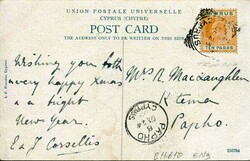 UNION POSTALE UNIVERSELLE
CYPRUS (CHYPRE)
POST CARD
THE ADDRESS ONLY TO BE WRITTEN ON THIS SIDE
CYPRUS
TEN PARAS
Wishing you both
a very happy Xmas
& a bright
New Year.
E & J Corsellis
Mrs R. MacLaughlen
Ktema
Papho.
PAPHO
CYPRUS